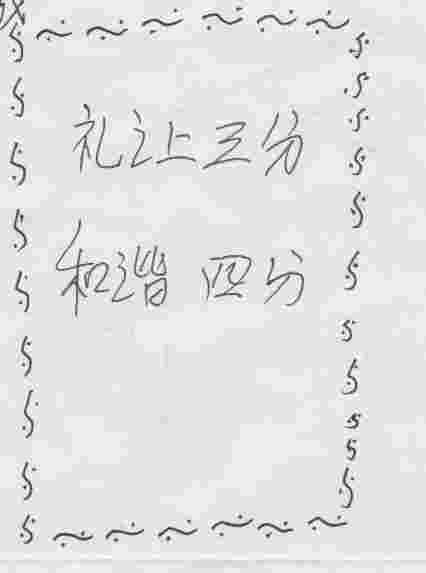 礼让三分
和谐四分